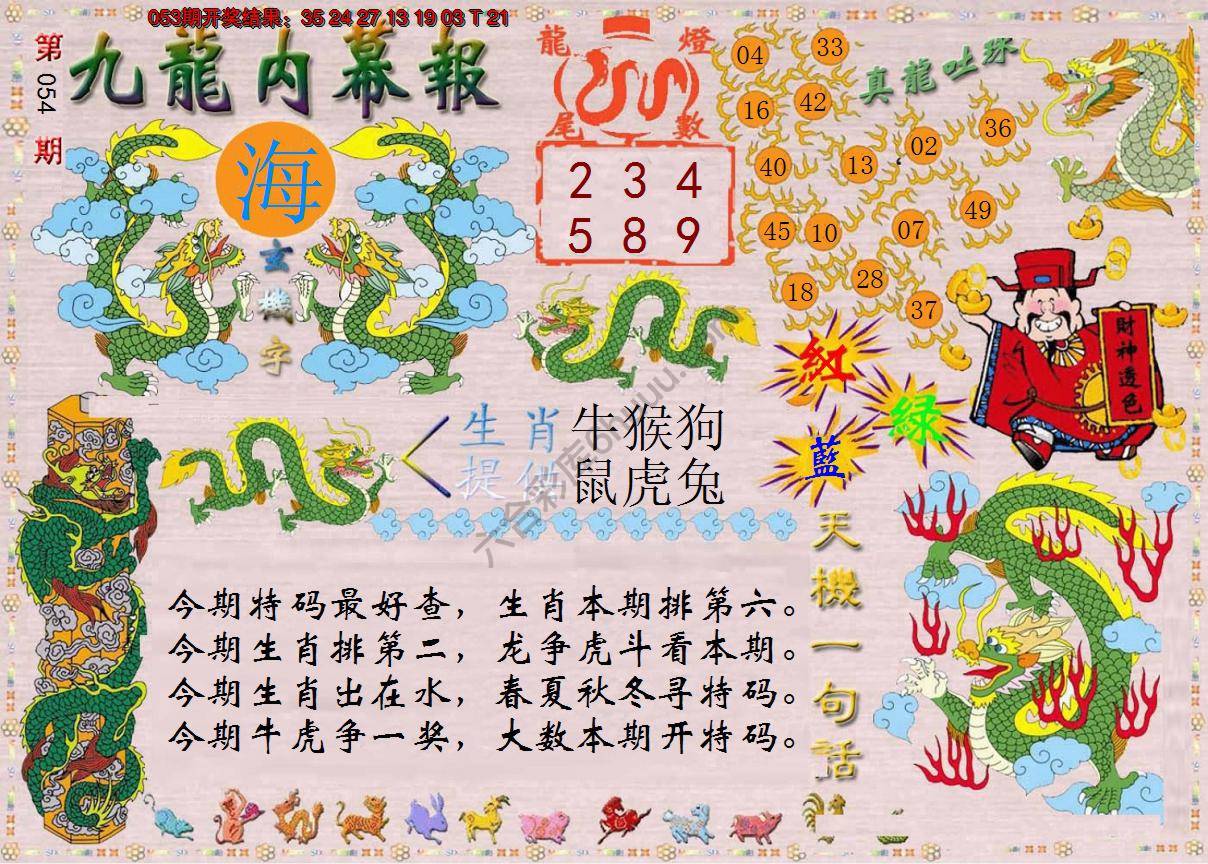 053期开奖结果：35 24 27 13 19 03 T 21
第054期
九龍内幕報
海
玄機字
龍燈
尾數
2 3 4
5 8 9
真龍吐珠
04
33
16
42
36
02
40
13
49
45
10
07
28
18
37
財神透色
紅
綠
藍
生肖
提供
牛猴狗
鼠虎兔
六合彩库
天機一句話
今期特码最好查，生肖本期排第六。
今期生肖排第二，龙争虎斗看本期。
今期生肖出在水，春夏秋冬寻特码。
今期牛虎争一奖，大数本期开特码。